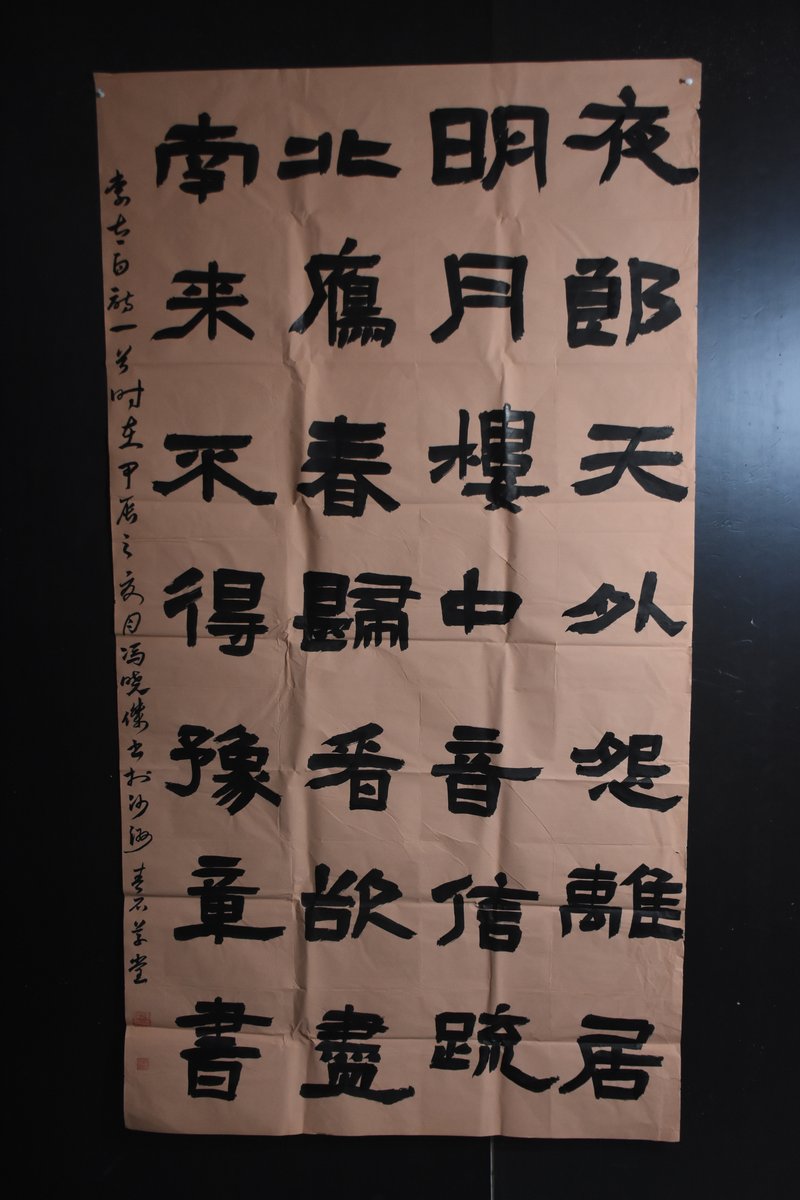 夜郎天外怨離居
明月樓中音信疏
北鴈春歸看欲盡
南来不得豫章書
李太白詩一首时在甲辰之夏月冯晓傑书於沙 春石草堂